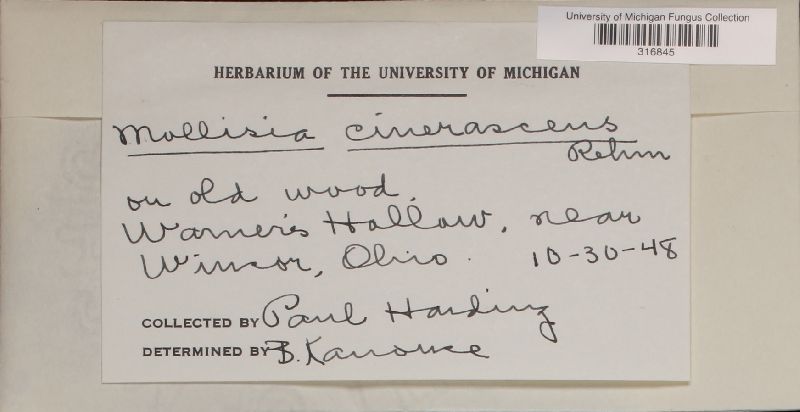 University of Michigan Fungus Collection
316845
HERBARIUM OF THE UNIVERSITY OF MICHIGAN
Mollisia cinerascens
Rehm
on old wood.
Warner's Hollow, near
Winsor, Ohio. 10-30-48
COLLECTED BY Paul Harding
DETERMINED BY B. Kanouse